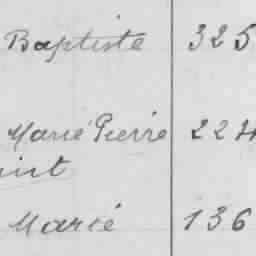 Baptiste 325
Marie Pierre 224
Marie 136